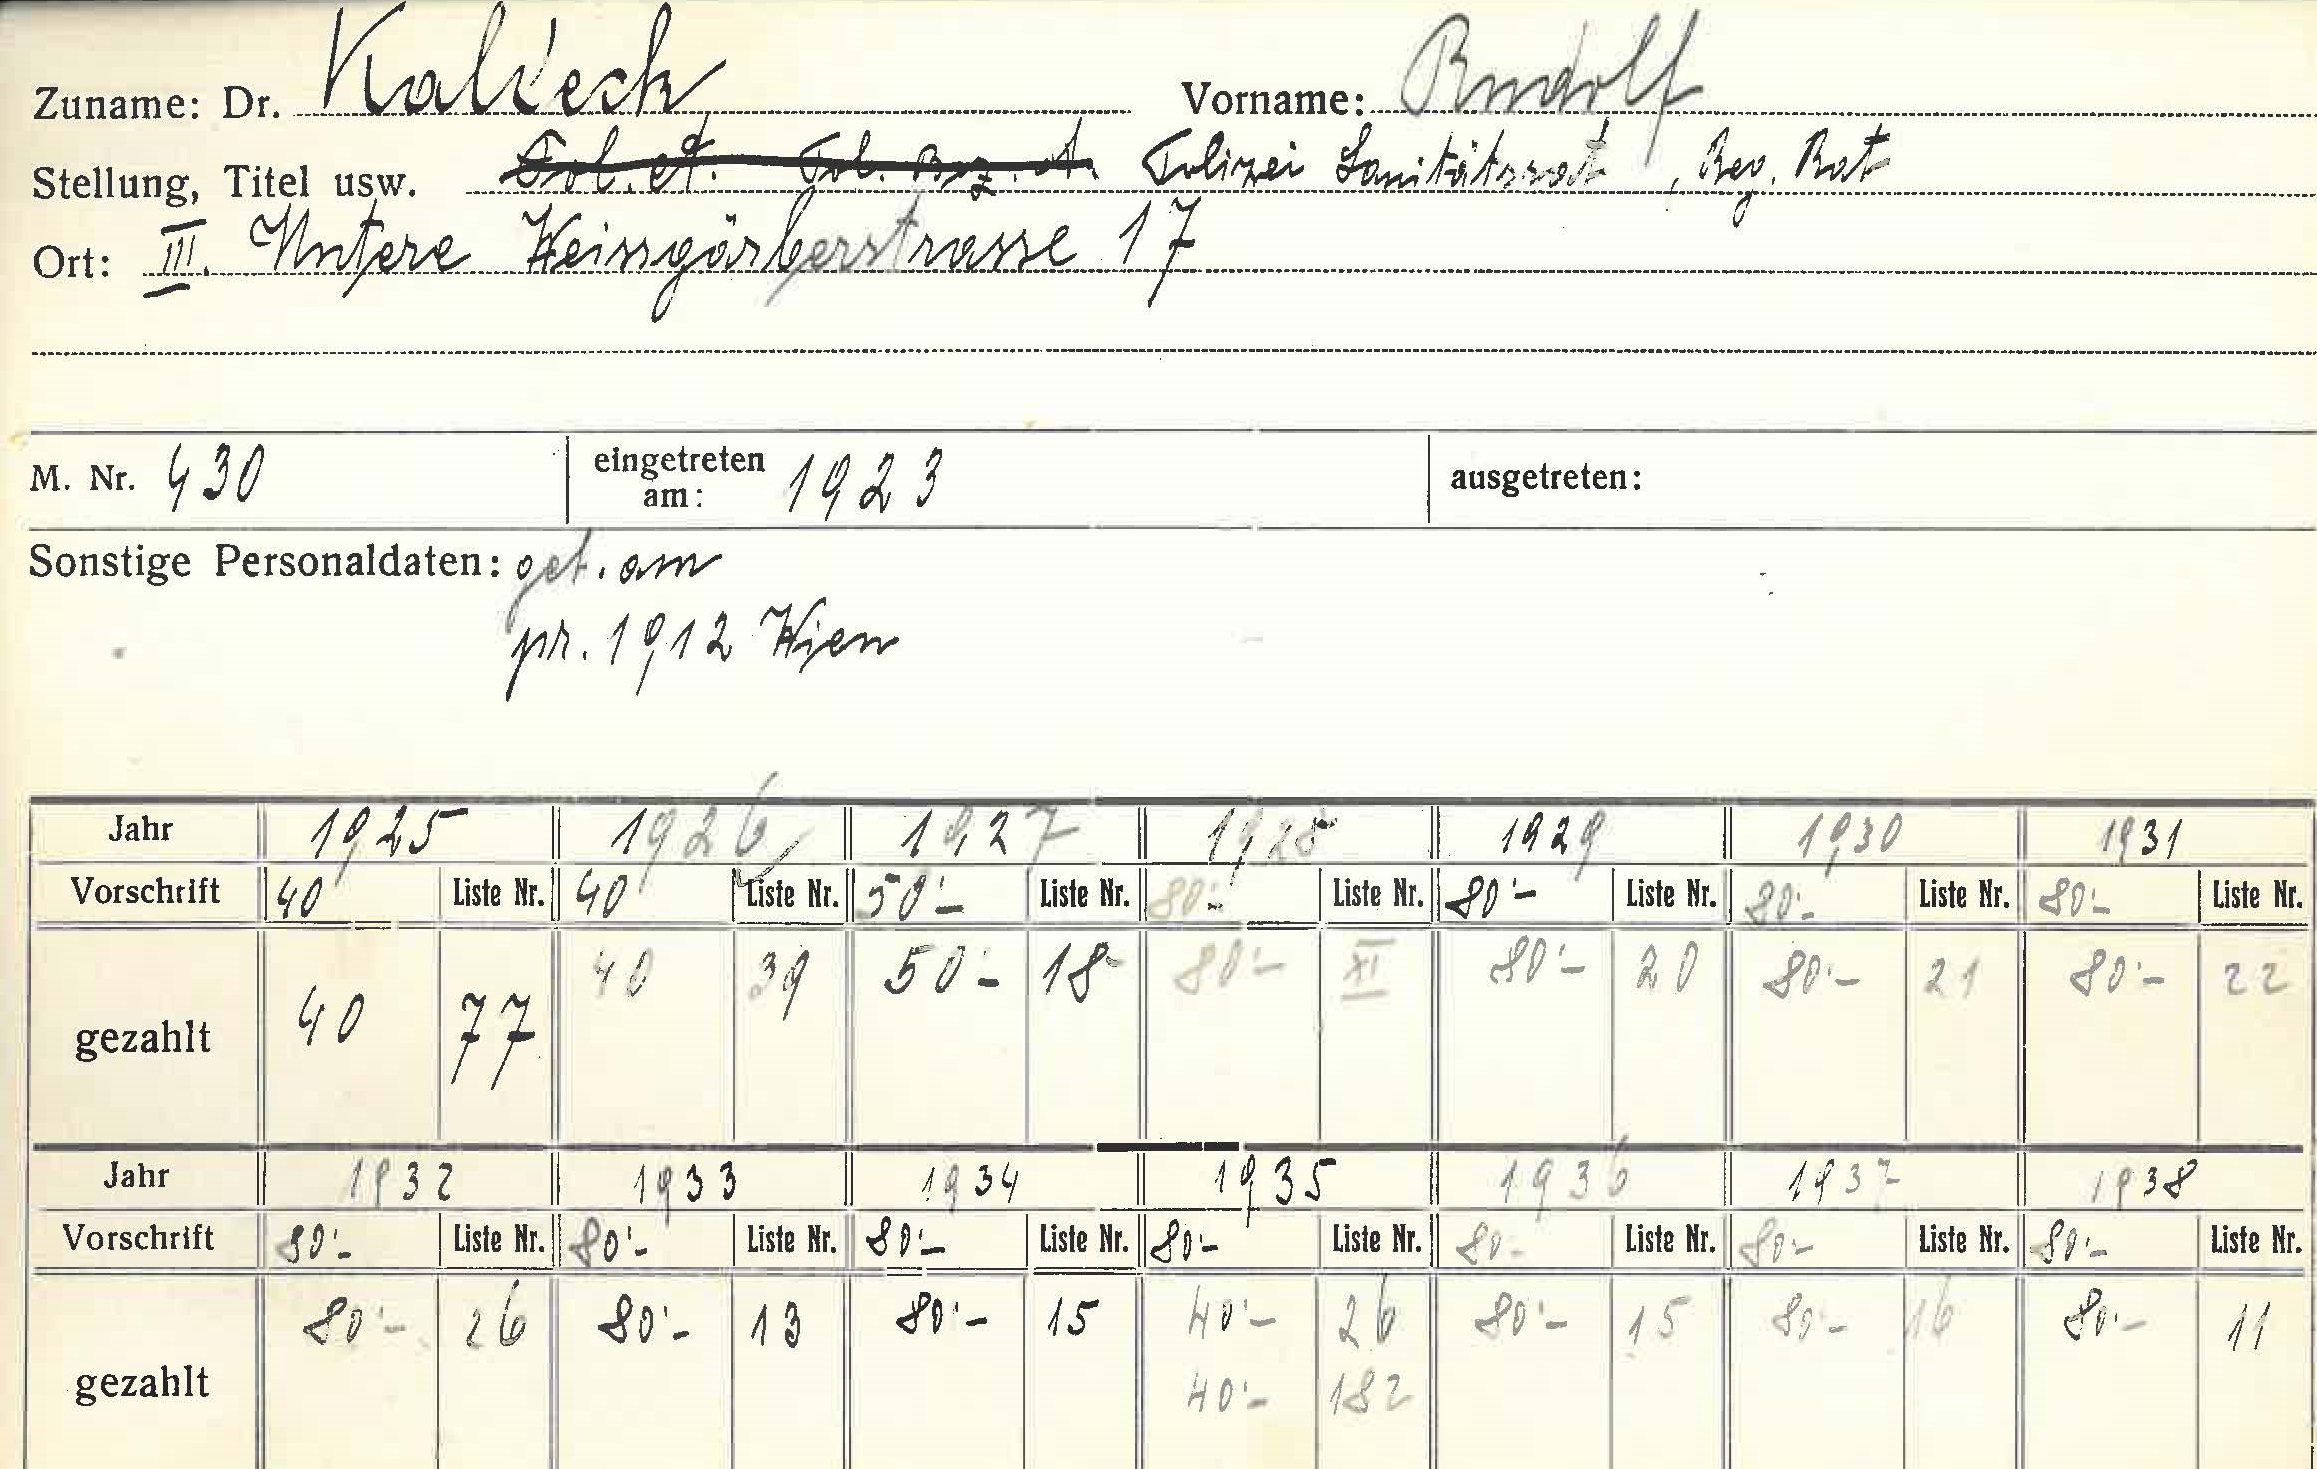 Zuname: Dr. Kaldeck Vorname: Rudolf
Stellung, Titel usw. Pol. Bez. A. Polizei Sanitätsrat, Reg. Rat
Ort: III. Untere Weissgärberstrasse 17
M. Nr. 430 eingetreten am: 1923 ausgetreten:
Sonstige Personaldaten: geb. am
pr. 1912 Wien
Jahr 1925 1926 1927 1928 1929 1930 1931
Vorschrift 40 Liste Nr. 40 Liste Nr. 50'- Liste Nr. 80'- Liste Nr. 80'- Liste Nr. 80'- Liste Nr. 80'- Liste Nr.
gezahlt 40 77 40 39 50'- 18 80'- XI 80'- 20 80'- 21 80'- 22
Jahr 1932 1933 1934 1935 1936 1937 1938
Vorschrift 80'- Liste Nr. 80'- Liste Nr. 80'- Liste Nr. 80'- Liste Nr. 80'- Liste Nr. 80'- Liste Nr. 80'- Liste Nr.
gezahlt 80'- 26 80'- 13 80'- 15 40'- 26 80'- 15 80'- 16 80'- 11
40'- 182